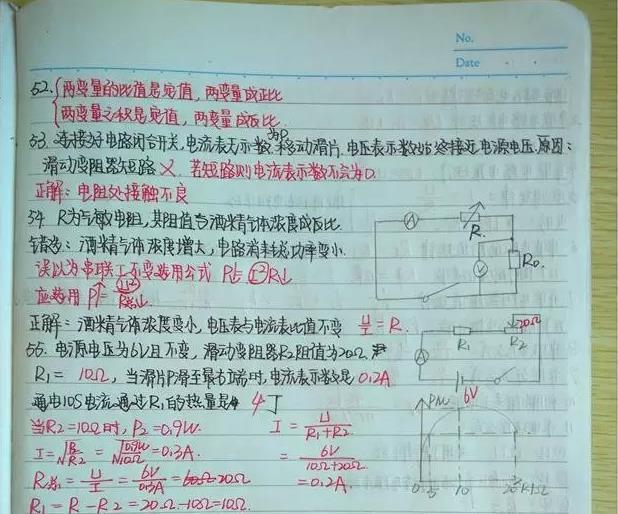 No.
Date
52. {两变量的比值是定值，两变量成正比
两变量之积是定值，两变量成反比.
53. 连接好电路闭合开关，电流表无示数为0，移动滑片，电压表示数始终接近电源电压.原因：
滑动变阻器短路 ×. 若短路则电流表示数不会为0.
正解：电阻处接触不良
54 R为气敏电阻，其阻值与酒精气体浓度成反比.
错答：酒精气体浓度增大，电路消耗总功率变小.
误以为串联I不变该用公式 P总=I²R↓
应该用 P↑=U²/R总↓
正解：酒精气体浓度变小，电压表与电流表比值不变 U/I = R.
55. 电源电压为6V且不变，滑动变阻器R2阻值为20Ω
R1 = 10Ω，当滑片P滑至最右端时，电流表示数是0.2A
通电10S电流通过R1的热量是 4J
当R2=10Ω时，P2=0.9W. I = U/R1+R2
I=√P2/R2 = √0.9W/10Ω=0.3A. = 6V/10Ω+20Ω
R总 = U/I = 6V/0.3A = 20Ω = 0.2A.
R1 = R-R2 = 20Ω-10Ω=10Ω.
A
R
V
R0
A
R1
R2
20Ω
6V
P/W
10
R/Ω